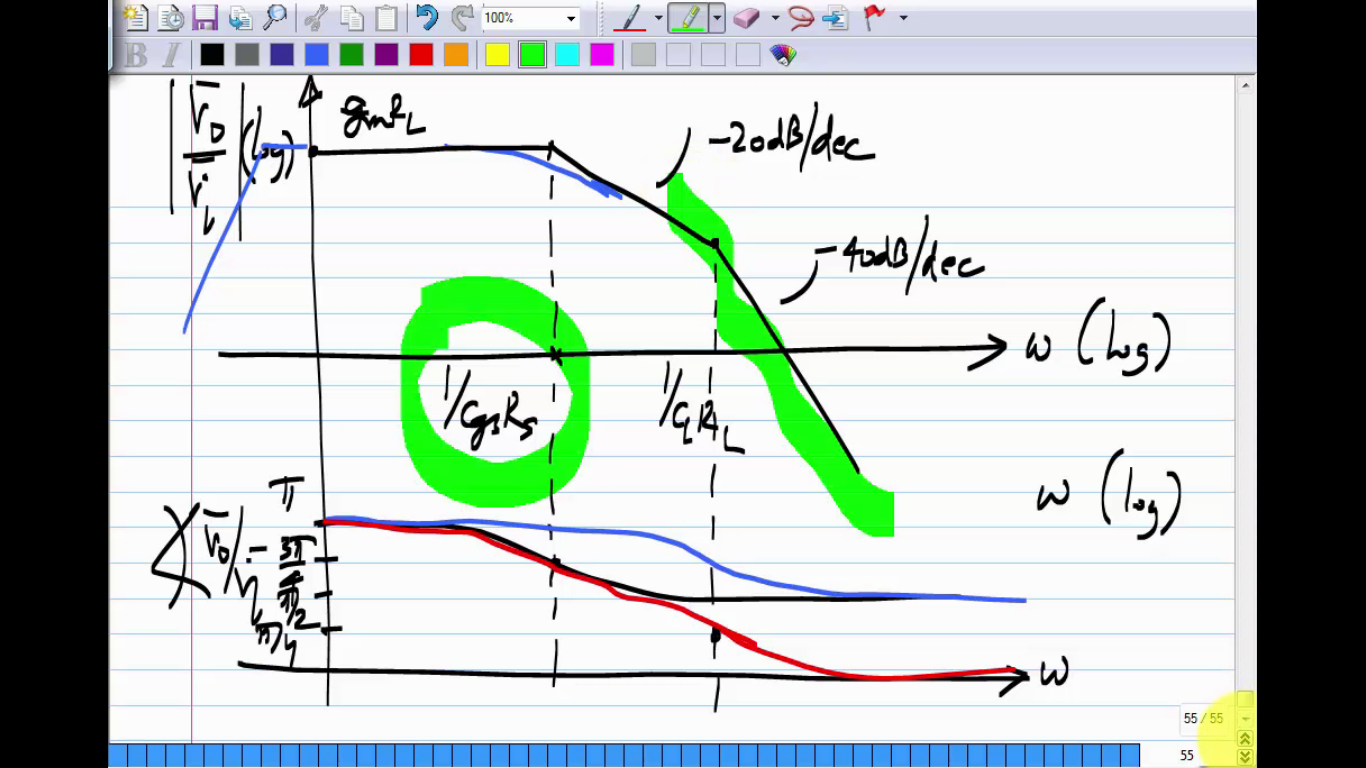 100%
B I
|v̄o/v̄i| (log)
gmRL
-20dB/dec
-40dB/dec
ω (log)
1/CgsRs
1/CLRL
ω (log)
π
∠ v̄o/v̄i
3π/4
π/2
π/4
ω
55 / 55
55